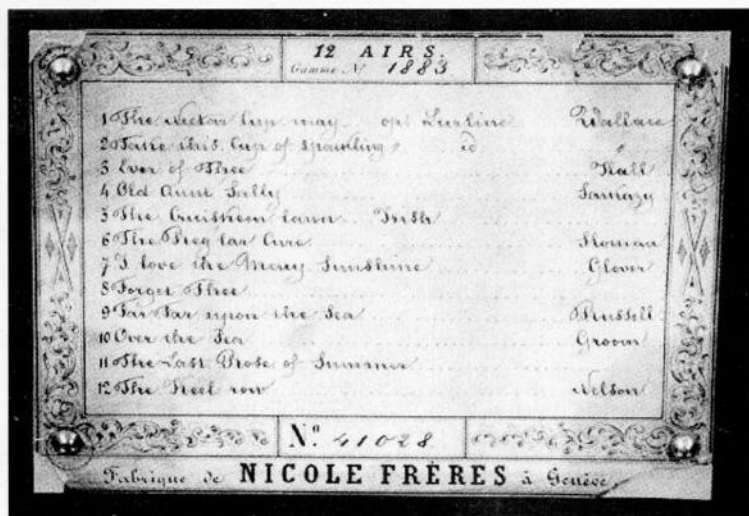 12 AIRS.
Gamme No 1883
1 The Nectar Cup may... op: Lurline Wallace
2 Take this Cup of Sparkling " id "
3 Ever of Thee Hall
4 Old Aunt Sally
5 The Cruiskeen lawn... Irish
6 The Cure
7 I love the Merry Sunshine Glover
8 Forget Thee
9 Far Far upon the Sea Russell
10 Over the Sea Groom
11 The Last Rose of Summer
12 The Keel row Nelson
No. 41028
Fabrique de NICOLE FRÈRES à Genève.